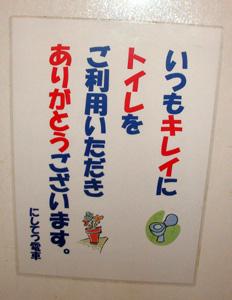 いつもキレイに
トイレを
ご利用いただき
ありがとうございます。
にしてつ電車